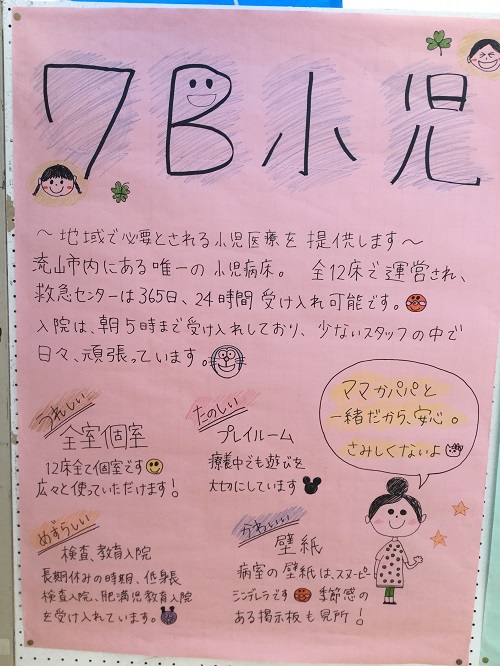 7B小児
～地域で必要とされる小児医療を提供します～
流山市内にある唯一の小児病床。 全12床で運営され、
救急センターは365日、24時間受け入れ可能です。
入院は、朝5時まで受け入れしており、少ないスタッフの中で
日々、頑張っています。
うれしい
全室個室
12床全て個室です
広々と使っていただけます！
たのしい
プレイルーム
療養中でも遊びを
大切にしています
ママかパパと
一緒だから、安心。
さみしくないよ
めずらしい
検査、教育入院
長期休みの時期、低身長
検査入院、肥満児教育入院
を受け入れています。
かわいい
壁紙
病室の壁紙は、スヌーピー
シンデレラです 季節感の
ある掲示板も見所！